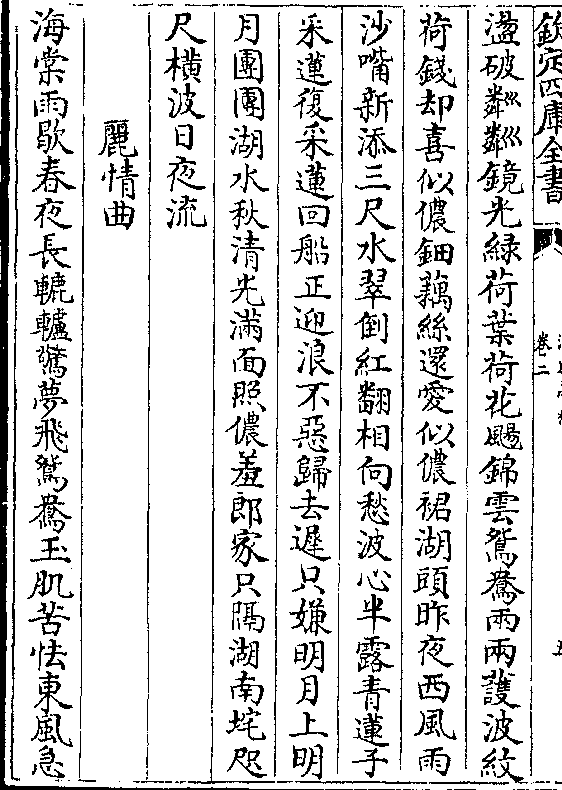 欽定四庫全書
卷二
盪破粼粼鏡光綠荷葉荷花颺錦雲鴛鴦兩兩護波紋
荷錢却喜似儂鈿藕絲還愛似儂裙湖頭昨夜西風雨
沙嘴新添三尺水翠倒紅翻相向愁波心半露青蓮子
采蓮復采蓮回船正迎浪不惡歸去遲只嫌明月上明
月團團湖水秋清光滿面照儂羞郎家只隔湖南垞咫
尺橫波日夜流
麗情曲
海棠雨歇春夜長轆轤驚夢飛鴛鴦玉肌苦怯東風急